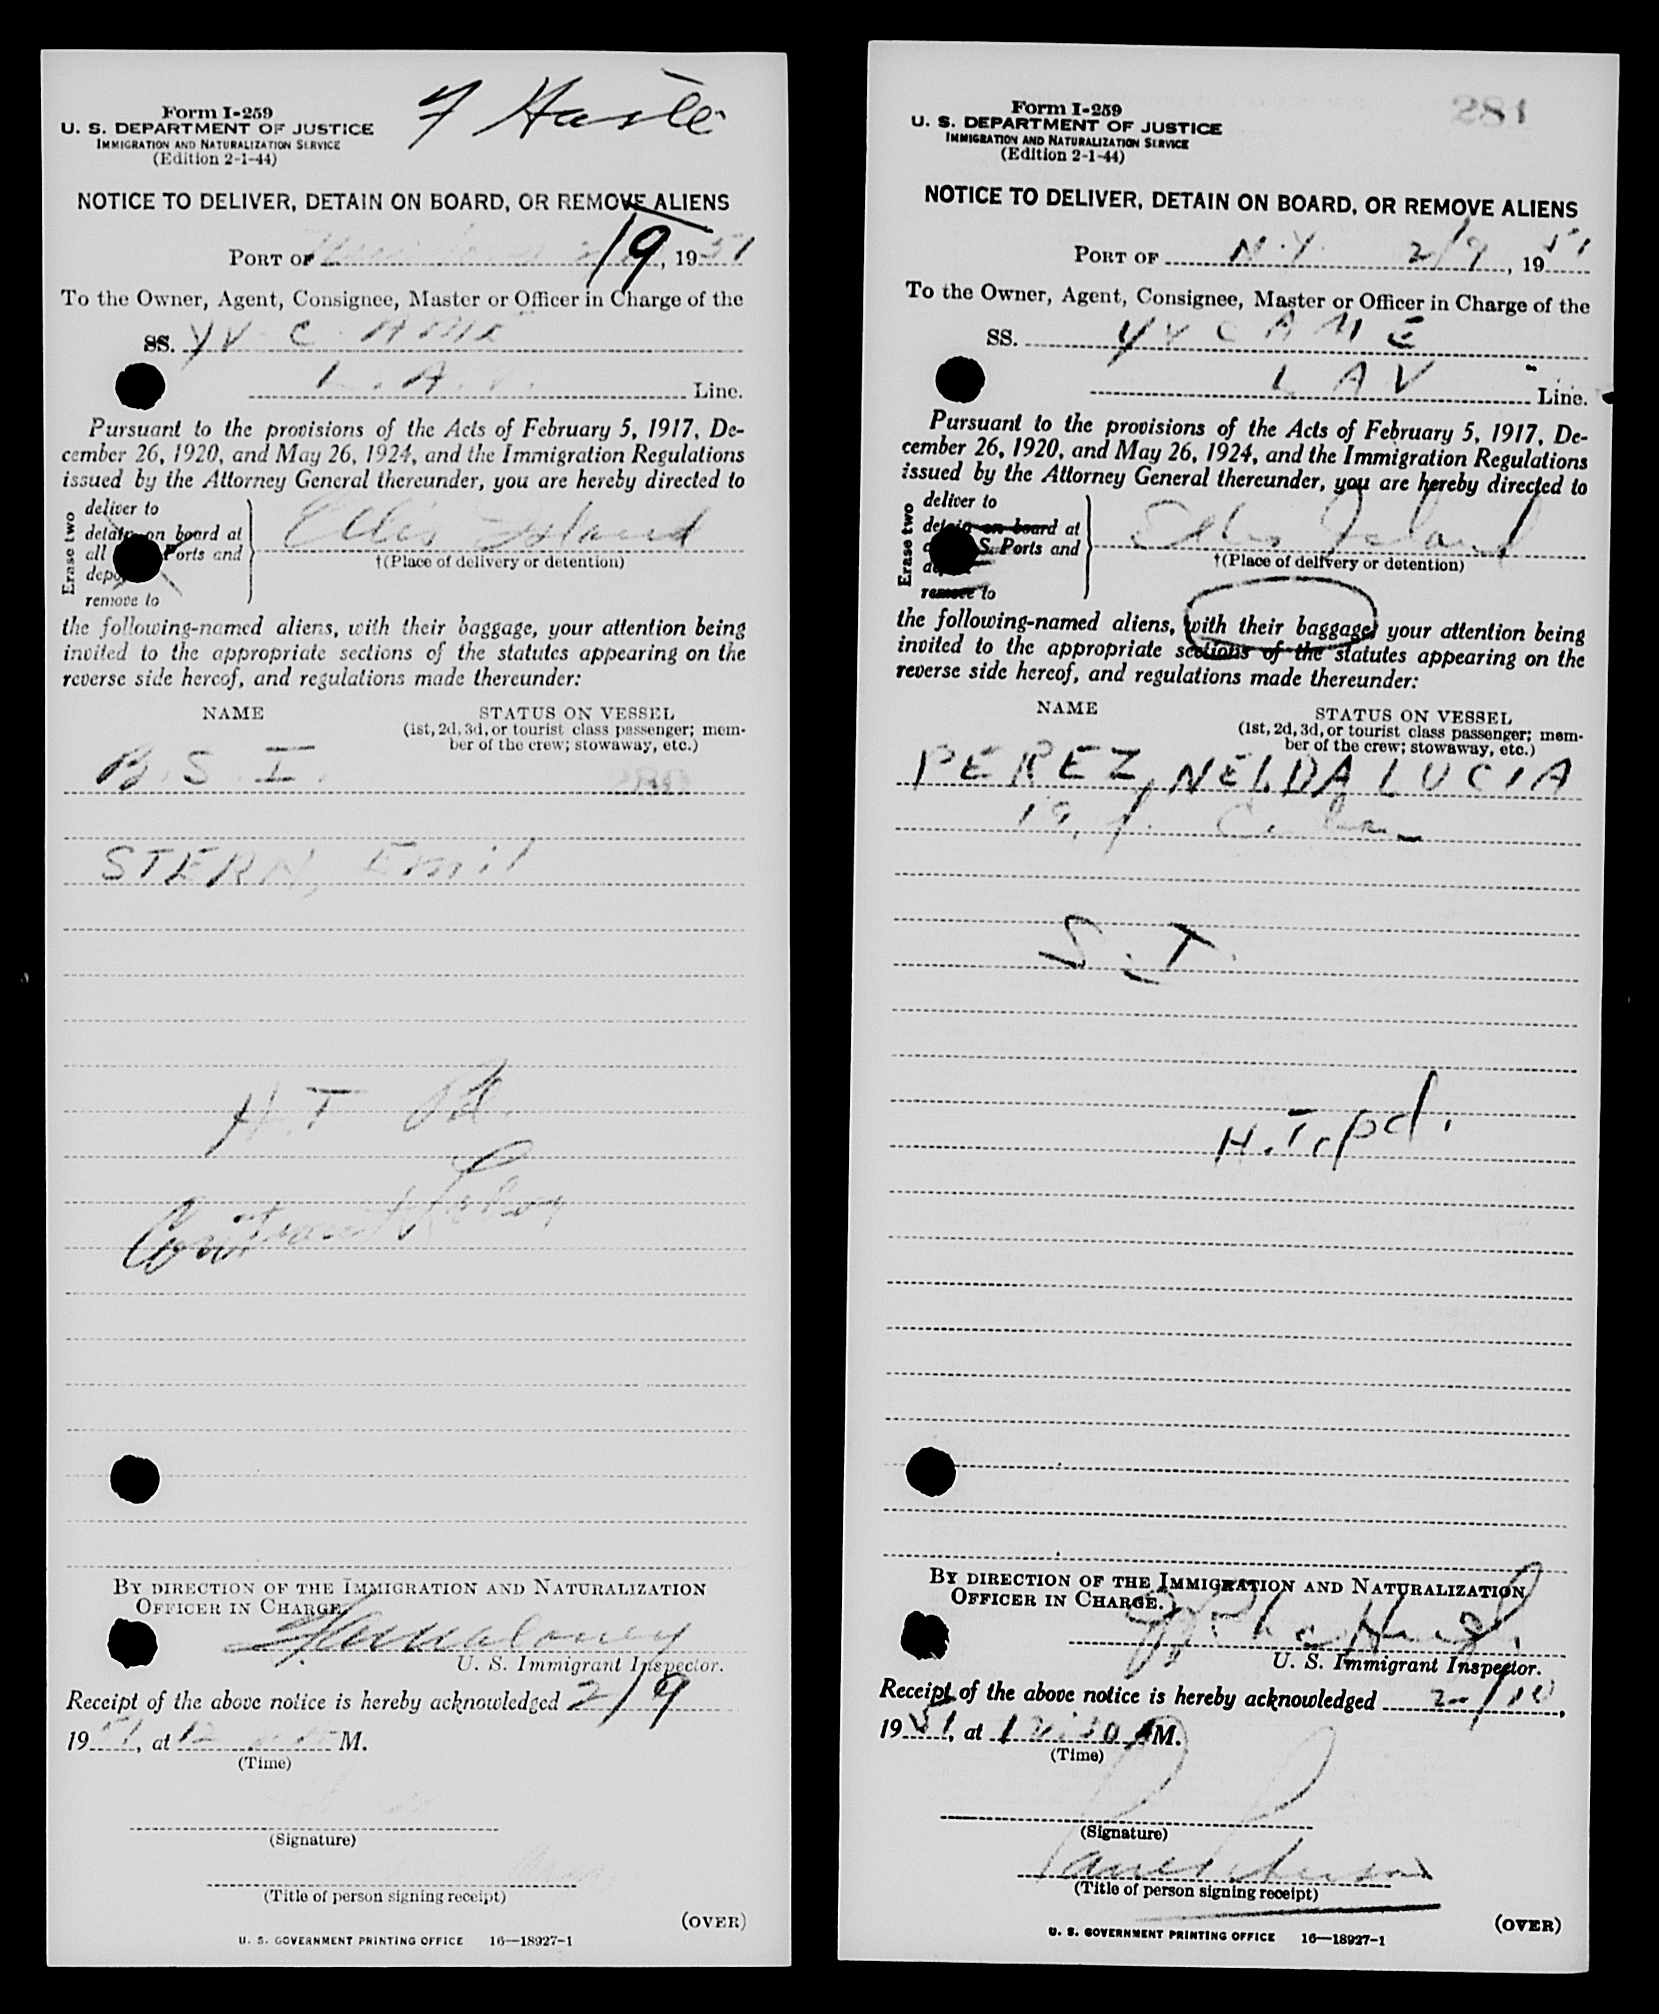 Form I-259
U. S. DEPARTMENT OF JUSTICE
IMMIGRATION AND NATURALIZATION SERVICE
(Edition 2-1-44)
NOTICE TO DELIVER, DETAIN ON BOARD, OR REMOVE ALIENS
PORT OF 2/9, 1951
To the Owner, Agent, Consignee, Master or Officer in Charge of the
SS. YV C AME
L.A.V. Line.
Pursuant to the provisions of the Acts of February 5, 1917, De-
cember 26, 1920, and May 26, 1924, and the Immigration Regulations
issued by the Attorney General thereunder, you are hereby directed to
Erase two
deliver to
detain on board at
all Ports and
remove to
Ellis Island
†(Place of delivery or detention)
the following-named aliens, with their baggage, your attention being
invited to the appropriate sections of the statutes appearing on the
reverse side hereof, and regulations made thereunder:
NAME
STATUS ON VESSEL
(1st, 2d, 3d, or tourist class passenger; mem-
ber of the crew; stowaway, etc.)
B. S. I.
280
STERN, Emil
H.T Pd.
Contract Labor
BY DIRECTION OF THE IMMIGRATION AND NATURALIZATION
OFFICER IN CHARGE.
U. S. Immigrant Inspector.
Receipt of the above notice is hereby acknowledged 2/9
1951, at 12 M.
(Time)
(Signature)
(Title of person signing receipt)
(OVER)
U. S. GOVERNMENT PRINTING OFFICE 16—18927-1
281
Form I-259
U. S. DEPARTMENT OF JUSTICE
IMMIGRATION AND NATURALIZATION SERVICE
(Edition 2-1-44)
NOTICE TO DELIVER, DETAIN ON BOARD, OR REMOVE ALIENS
PORT OF N.Y. 2/9, 1951
To the Owner, Agent, Consignee, Master or Officer in Charge of the
SS. YV C AME
L A V Line.
Pursuant to the provisions of the Acts of February 5, 1917, De-
cember 26, 1920, and May 26, 1924, and the Immigration Regulations
issued by the Attorney General thereunder, you are hereby directed to
Erase two
deliver to
detain on board at
S. Ports and
remove to
Ellis Island
†(Place of delivery or detention)
the following-named aliens, with their baggage, your attention being
invited to the appropriate sections of the statutes appearing on the
reverse side hereof, and regulations made thereunder:
NAME
STATUS ON VESSEL
(1st, 2d, 3d, or tourist class passenger; mem-
ber of the crew; stowaway, etc.)
PEREZ, NELDA LUCIA
19, f. Cuba
S.I.
H.T. pd.
BY DIRECTION OF THE IMMIGRATION AND NATURALIZATION
OFFICER IN CHARGE.
U. S. Immigrant Inspector.
Receipt of the above notice is hereby acknowledged 2/10,
1951, at 12:30 AM.
(Time)
(Signature)
(Title of person signing receipt)
(OVER)
U. S. GOVERNMENT PRINTING OFFICE 16—18927-1